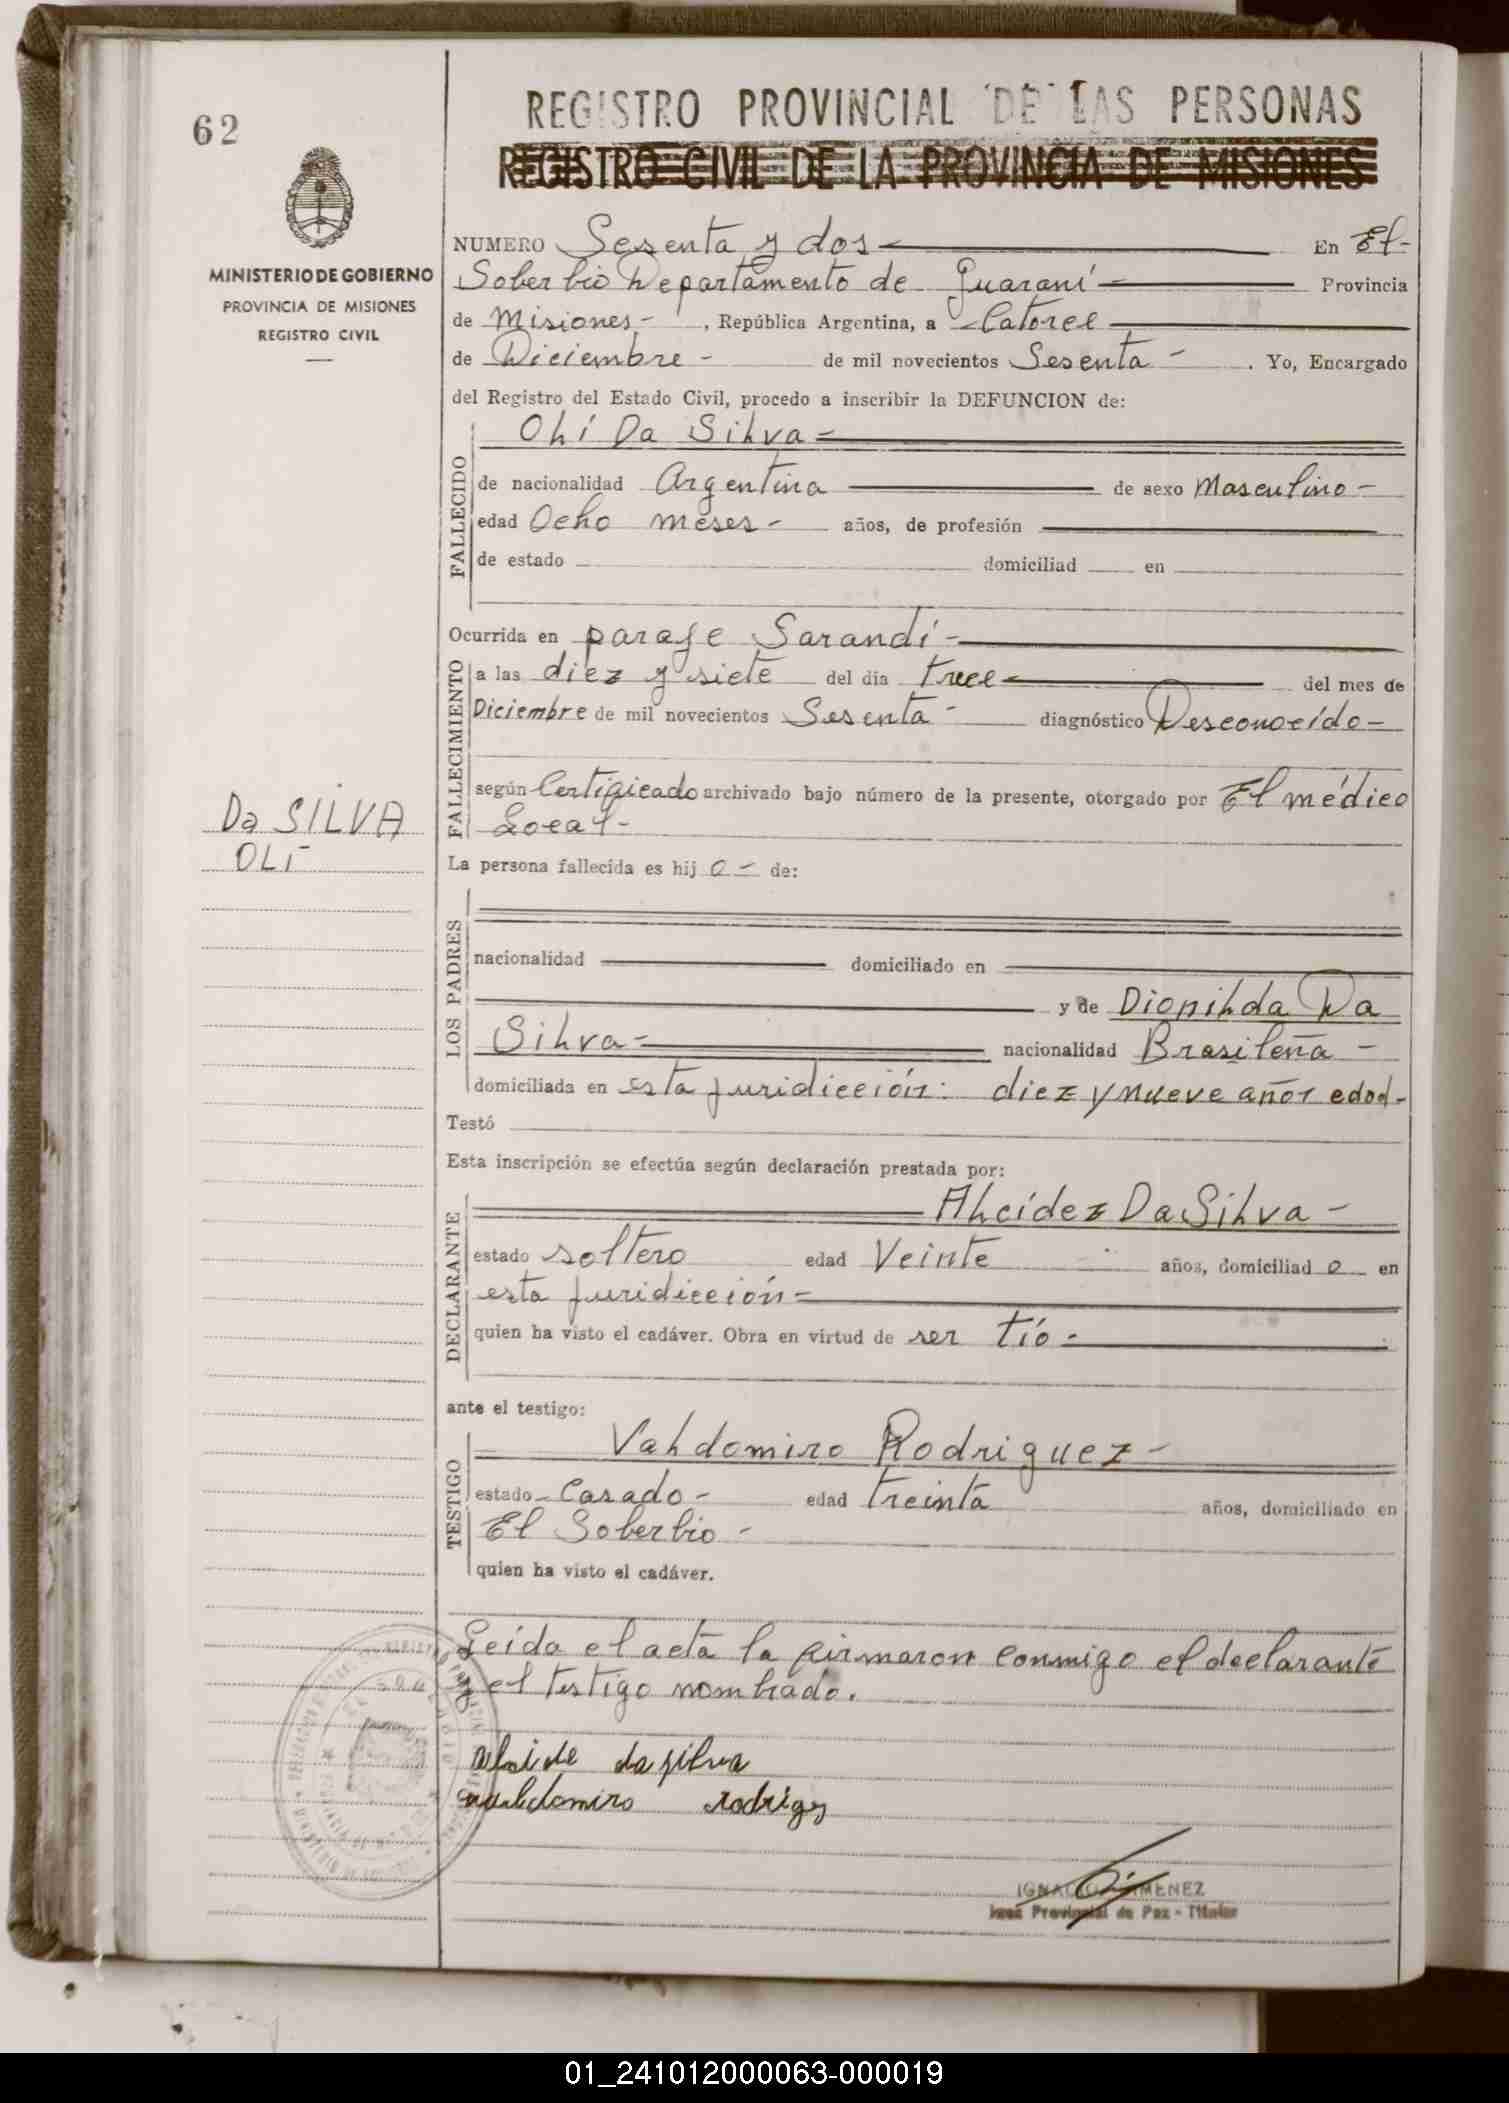 62
REGISTRO PROVINCIAL DE LAS PERSONAS
REGISTRO CIVIL DE LA PROVINCIA DE MISIONES
MINISTERIO DE GOBIERNO
PROVINCIA DE MISIONES
REGISTRO CIVIL
NUMERO Sesenta y dos En El-
Soberbio Departamento de Guaraní- Provincia
de Misiones- , República Argentina, a Catorce
de Diciembre- de mil novecientos Sesenta- . Yo, Encargado
del Registro del Estado Civil, procedo a inscribir la DEFUNCION de:
FALLECIDO
Olí Da Silva-
de nacionalidad Argentina de sexo Masculino-
edad Ocho meses- años, de profesión
de estado domiciliad en
FALLECIMIENTO
Ocurrida en paraje Sarandí-
a las diez y siete del día trece del mes de
Diciembre de mil novecientos Sesenta- diagnóstico Desconocído-
según Certificado archivado bajo número de la presente, otorgado por El médico
Local-
Da SILVA
OLI
La persona fallecida es hij o- de:
LOS PADRES
nacionalidad domiciliado en
y de Dionilda Da
Silva- nacionalidad Brasileña-
domiciliada en esta juridicción: diez y nueve años edad-
Testó
Esta inscripción se efectúa según declaración prestada por:
DECLARANTE
Alcídez Da Silva-
estado soltero edad Veinte años, domiciliad o en
esta juridicción-
quien ha visto el cadáver. Obra en virtud de ser tío-
ante el testigo:
TESTIGO
Valdomiro Rodriguez-
estado Casado- edad treinta años, domiciliado en
El Soberbio-
quien ha visto el cadáver.
Leída el acta la firmaron conmigo el declarante
y el testigo nombrado.
da silva
rodrigez
IGNACIO GIMENEZ
Juez Provincial de Paz - Titular
01_241012000063-000019